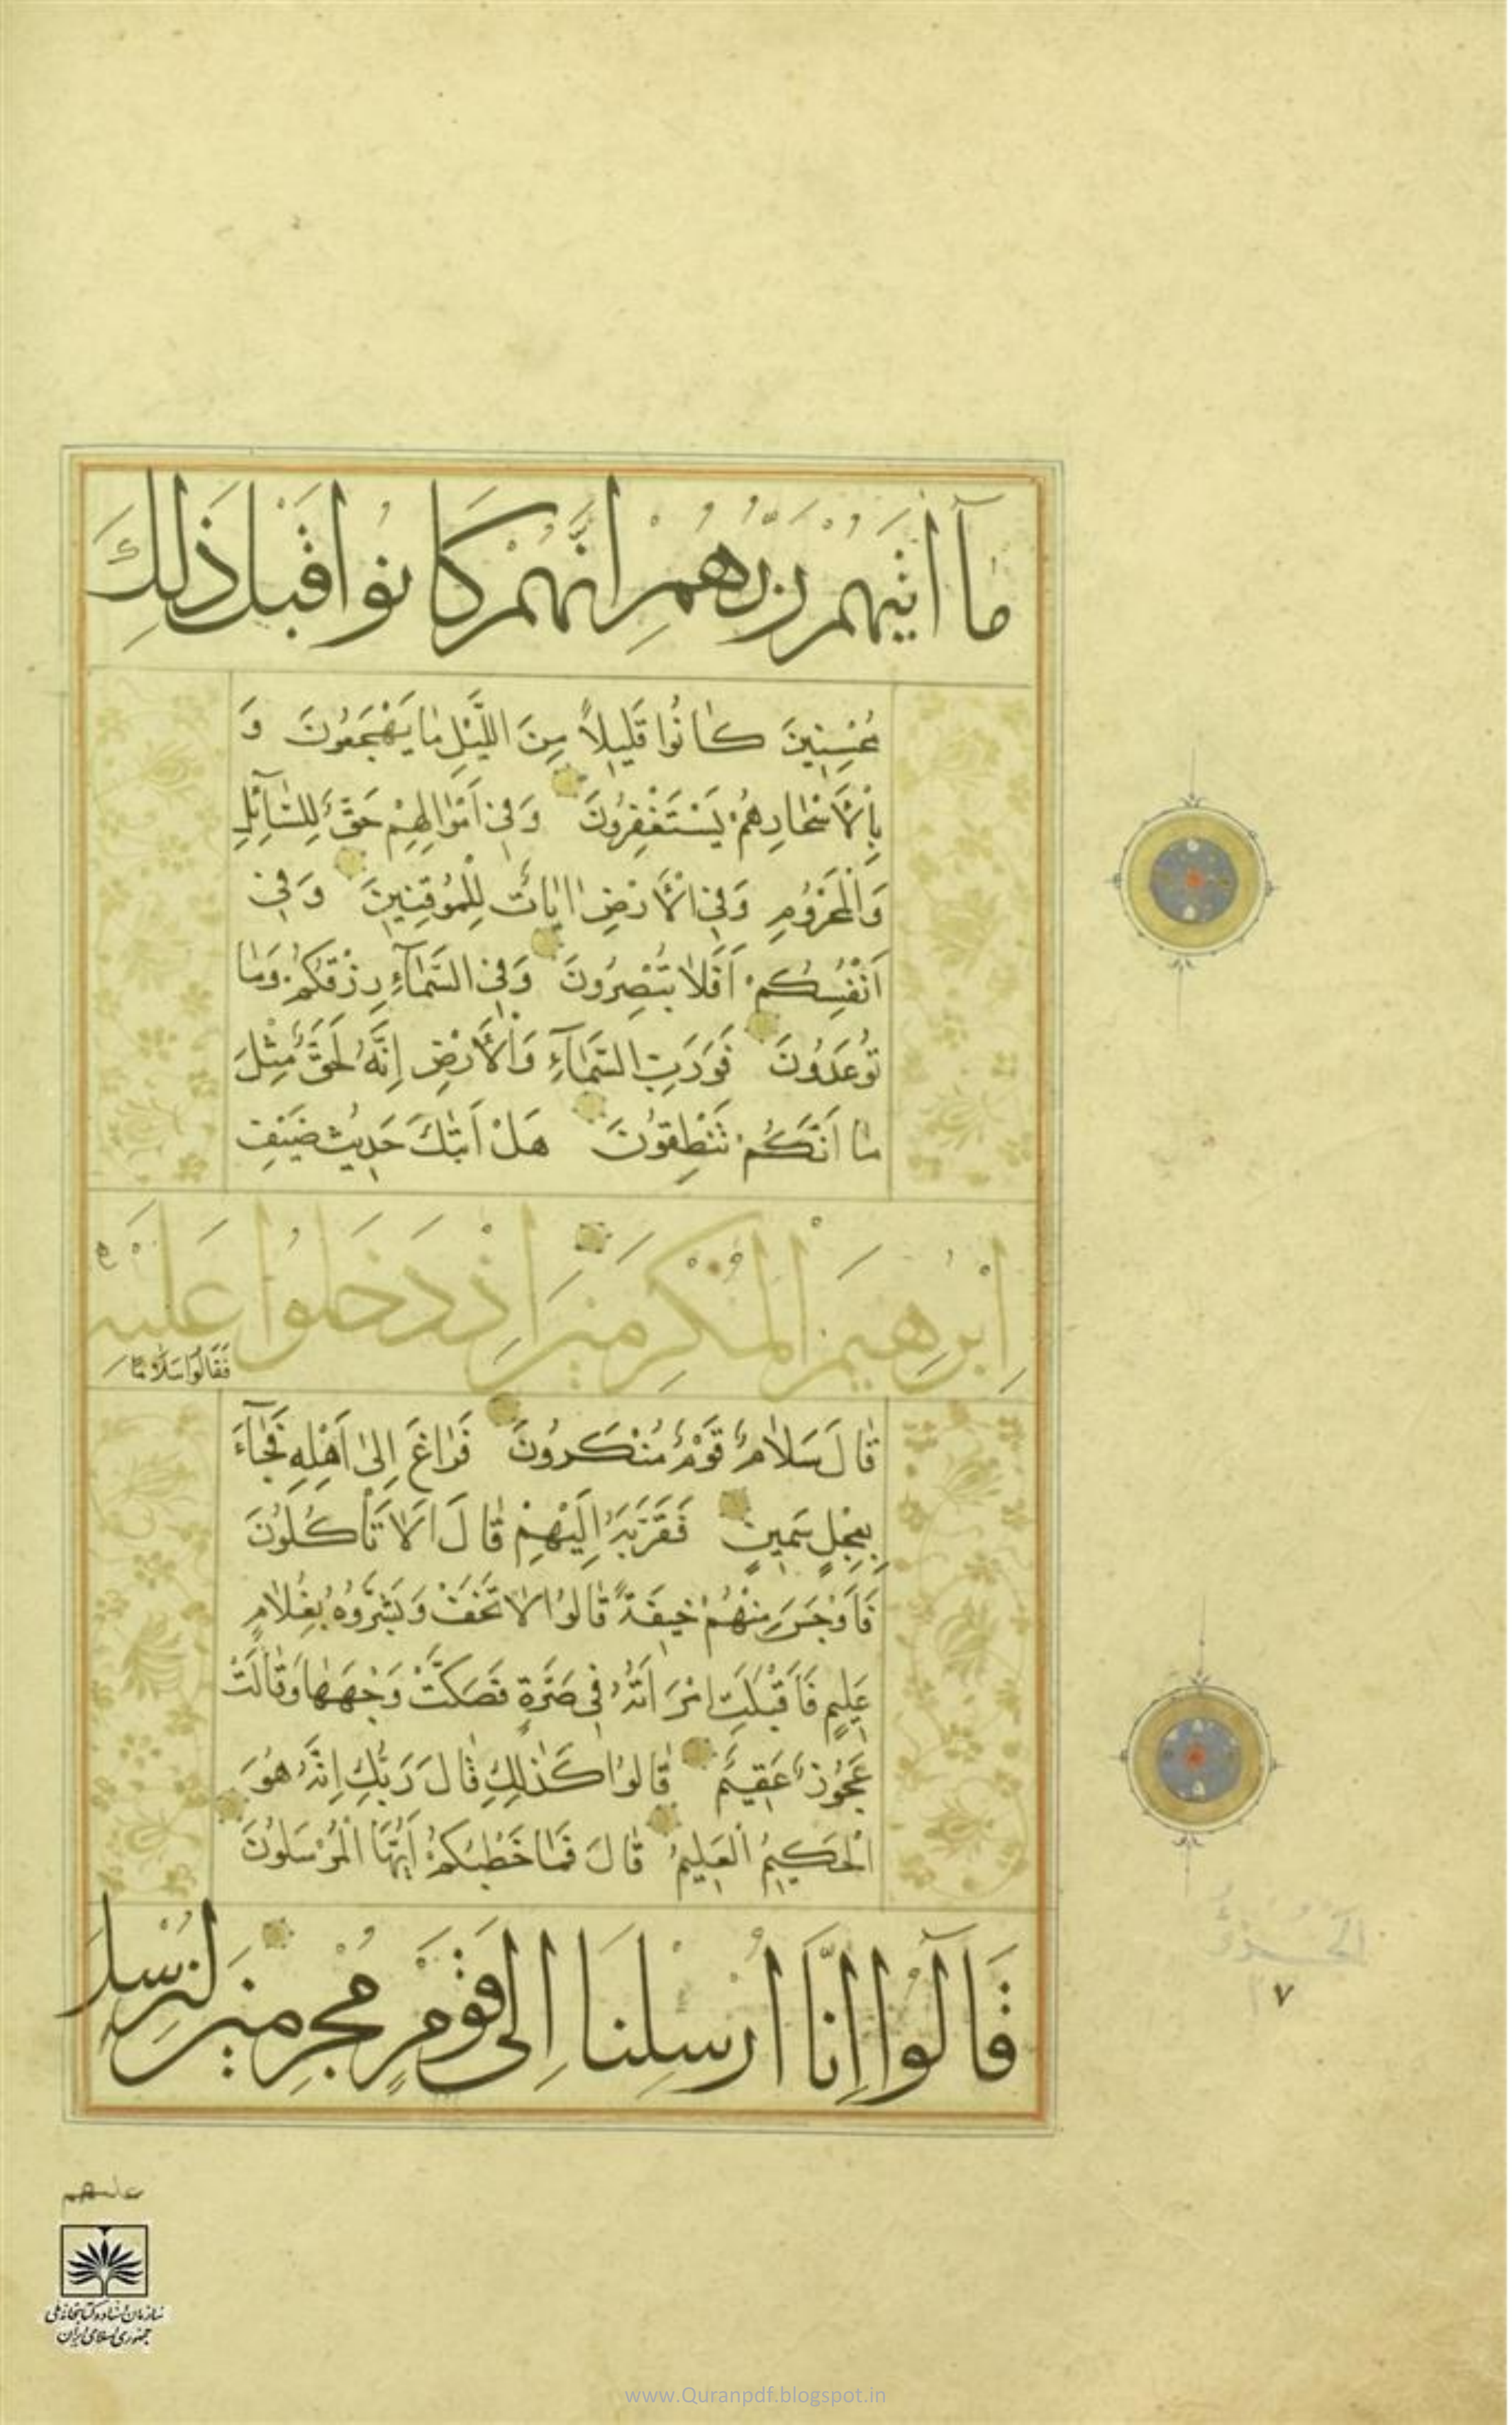 مَآ اٰتٰیهُمْ رَبُّهُمْ اِنَّهُمْ كَانُوا قَبْلَ ذٰلِكَ
مُحْسِنِينَ كٰانُوا قَلِيلاً مِنَ اللَّيْلِ مٰا يَهْجَعُونَ وَ
بِالْأَسْحٰارِهُمْ يَسْتَغْفِرُونَ وَفِي أَمْوٰالِهِمْ حَقٌّ لِلسّٰآئِلِ
وَالْمَحْرُومِ وَفِي الْأَرْضِ اٰيٰاتٌ لِلْمُوقِنِينَ وَفِي
أَنْفُسِكُمْ أَفَلاٰ تُبْصِرُونَ وَفِي السَّمٰآءِ رِزْقُكُمْ وَمٰا
تُوعَدُونَ فَوَرَبِّ السَّمٰآءِ وَالْأَرْضِ إِنَّهُ لَحَقٌّ مِثْلَ
مٰا أَنَّكُمْ تَنْطِقُونَ هَلْ أَتٰكَ حَدِيثُ ضَيْفِ
اِبْرٰهِيمَ الْمُكْرَمِينَ اِذْ دَخَلُوا عَلَيْهِ
فَقَالُوا سَلَامًا
قٰالَ سَلاٰمٌ قَوْمٌ مُنْكَرُونَ فَرٰاغَ إِلىٰ أَهْلِهِ فَجٰآءَ
بِعِجْلٍ سَمِينٍ فَقَرَّبَهُ إِلَيْهِمْ قٰالَ أَلاٰ تَأْكُلُونَ
فَأَوْجَسَ مِنْهُمْ خِيفَةً قٰالُوا لاٰ تَخَفْ وَبَشَّرُوهُ بِغُلاٰمٍ
عَلِيمٍ فَأَقْبَلَتِ امْرَأَتُهُ فِي صَرَّةٍ فَصَكَّتْ وَجْهَهٰا وَقٰالَتْ
عَجُوزٌ عَقِيمٌ قٰالُوا كَذٰلِكِ قٰالَ رَبُّكِ إِنَّهُ هُوَ
الْحَكِيمُ الْعَلِيمُ قٰالَ فَمٰا خَطْبُكُمْ أَيُّهَا الْمُرْسَلُونَ
قَالُوٓا اِنَّآ اُرْسِلْنَا اِلٰى قَوْمٍ مُجْرِمِينَ لِنُرْسِلَ
۷
علیهم
سازمان اسناد و کتابخانه ملی
جمهوری اسلامی ایران
www.Quranpdf.blogspot.in